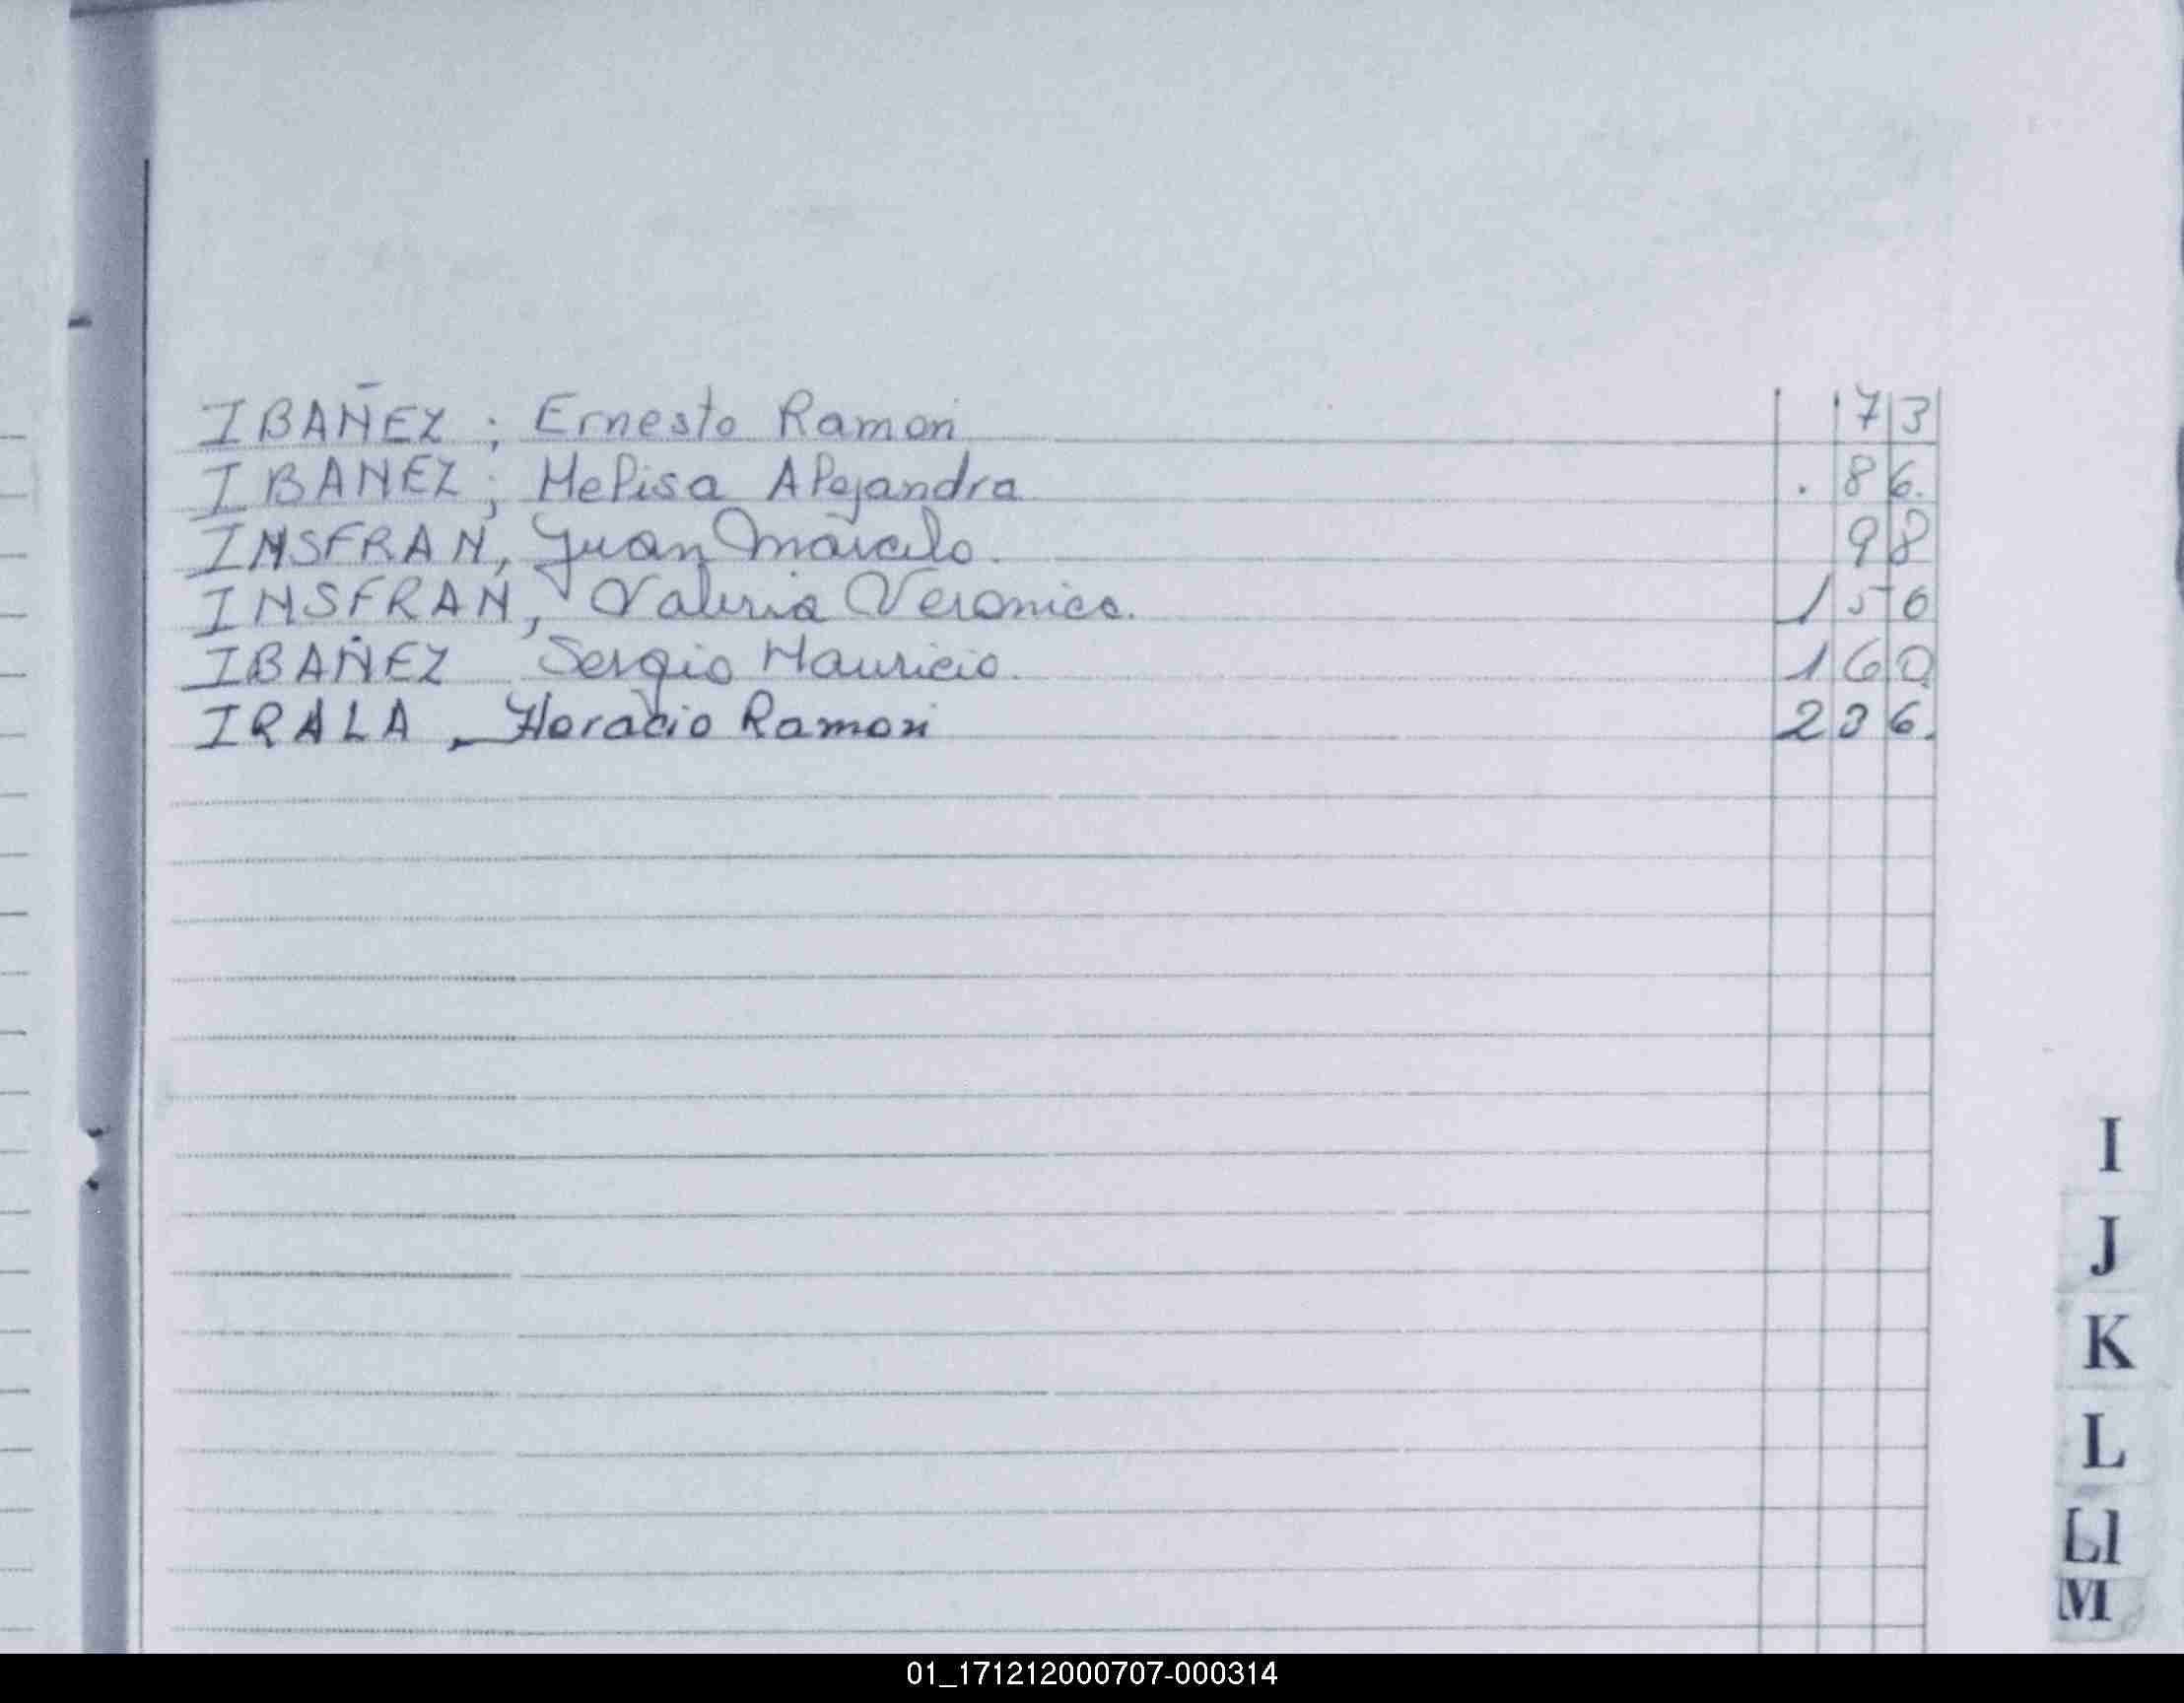 IBAÑEZ ; Ernesto Ramon 73
IBANEZ ; Melisa Alejandra . 86.
INSFRAN, Juan Marcelo. 98
INSFRAN, Valeria Veronica. 150
IBAÑEZ Sergio Mauricio. 160
IRALA, Horacio Ramon 236.
I
J
K
L
Ll
M
01_171212000707-000314